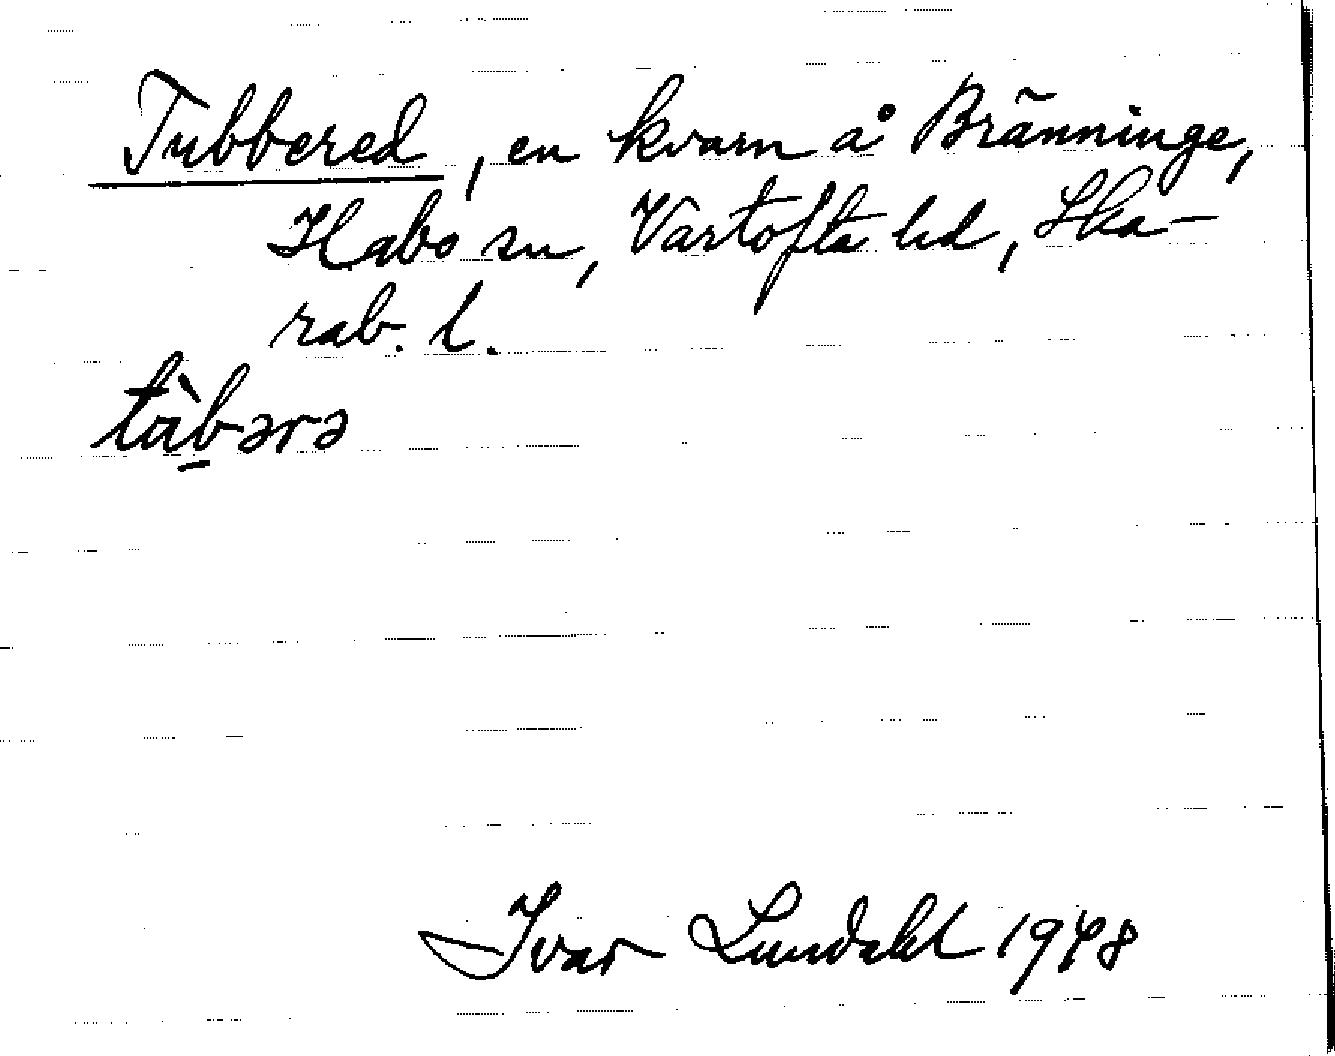 Tubbered, en kvarn å Bränninge,
Habo sn, Vartofta hd, Ska-
rab. l.
tàb̲ərə
Ivar Lundahl 1948